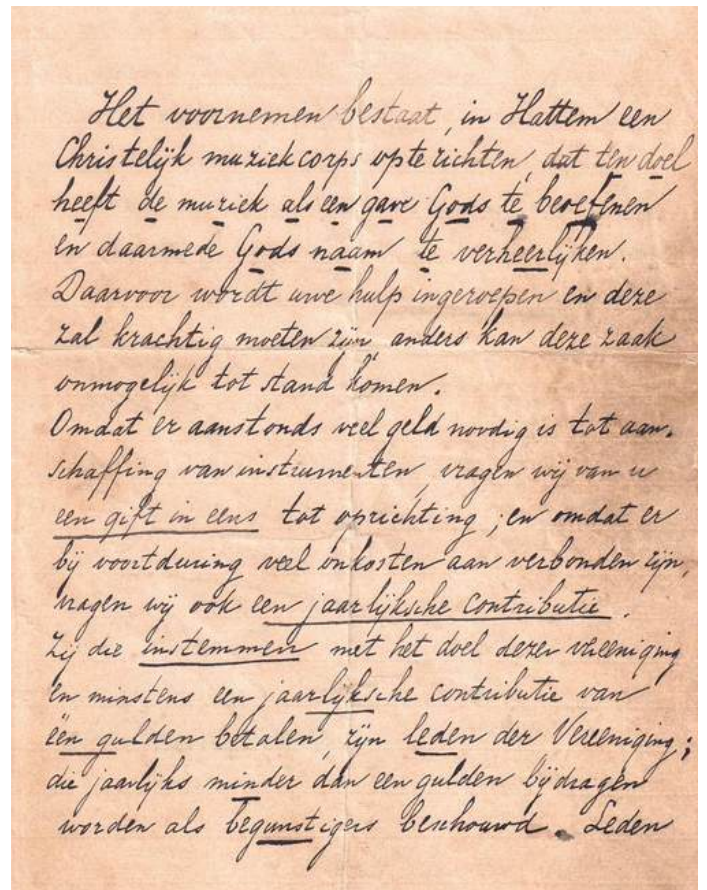 Het voornemen bestaat, in Hattem een
Christelijk muziekcorps op te richten, dat ten doel
heeft de muziek als een gave Gods te beoefenen
en daarmede Gods naam te verheerlijken.
Daarvoor wordt uwe hulp ingeroepen en deze
zal krachtig moeten zijn, anders kan deze zaak
onmogelijk tot stand komen.
Omdat er aanstonds veel geld noodig is tot aan-
schaffing van instrumenten, vragen wij van u
een gift in eens tot oprichting; en omdat er
bij voortduring veel onkosten aan verbonden zijn,
vragen wij ook een jaarlijksche contributie.
Zij die instemmen met het doel dezer vereeniging
en minstens een jaarlijksche contributie van
één gulden betalen, zijn leden der Vereeniging;
die jaarlijks minder dan een gulden bijdragen
worden als begunstigers beschouwd. Leden